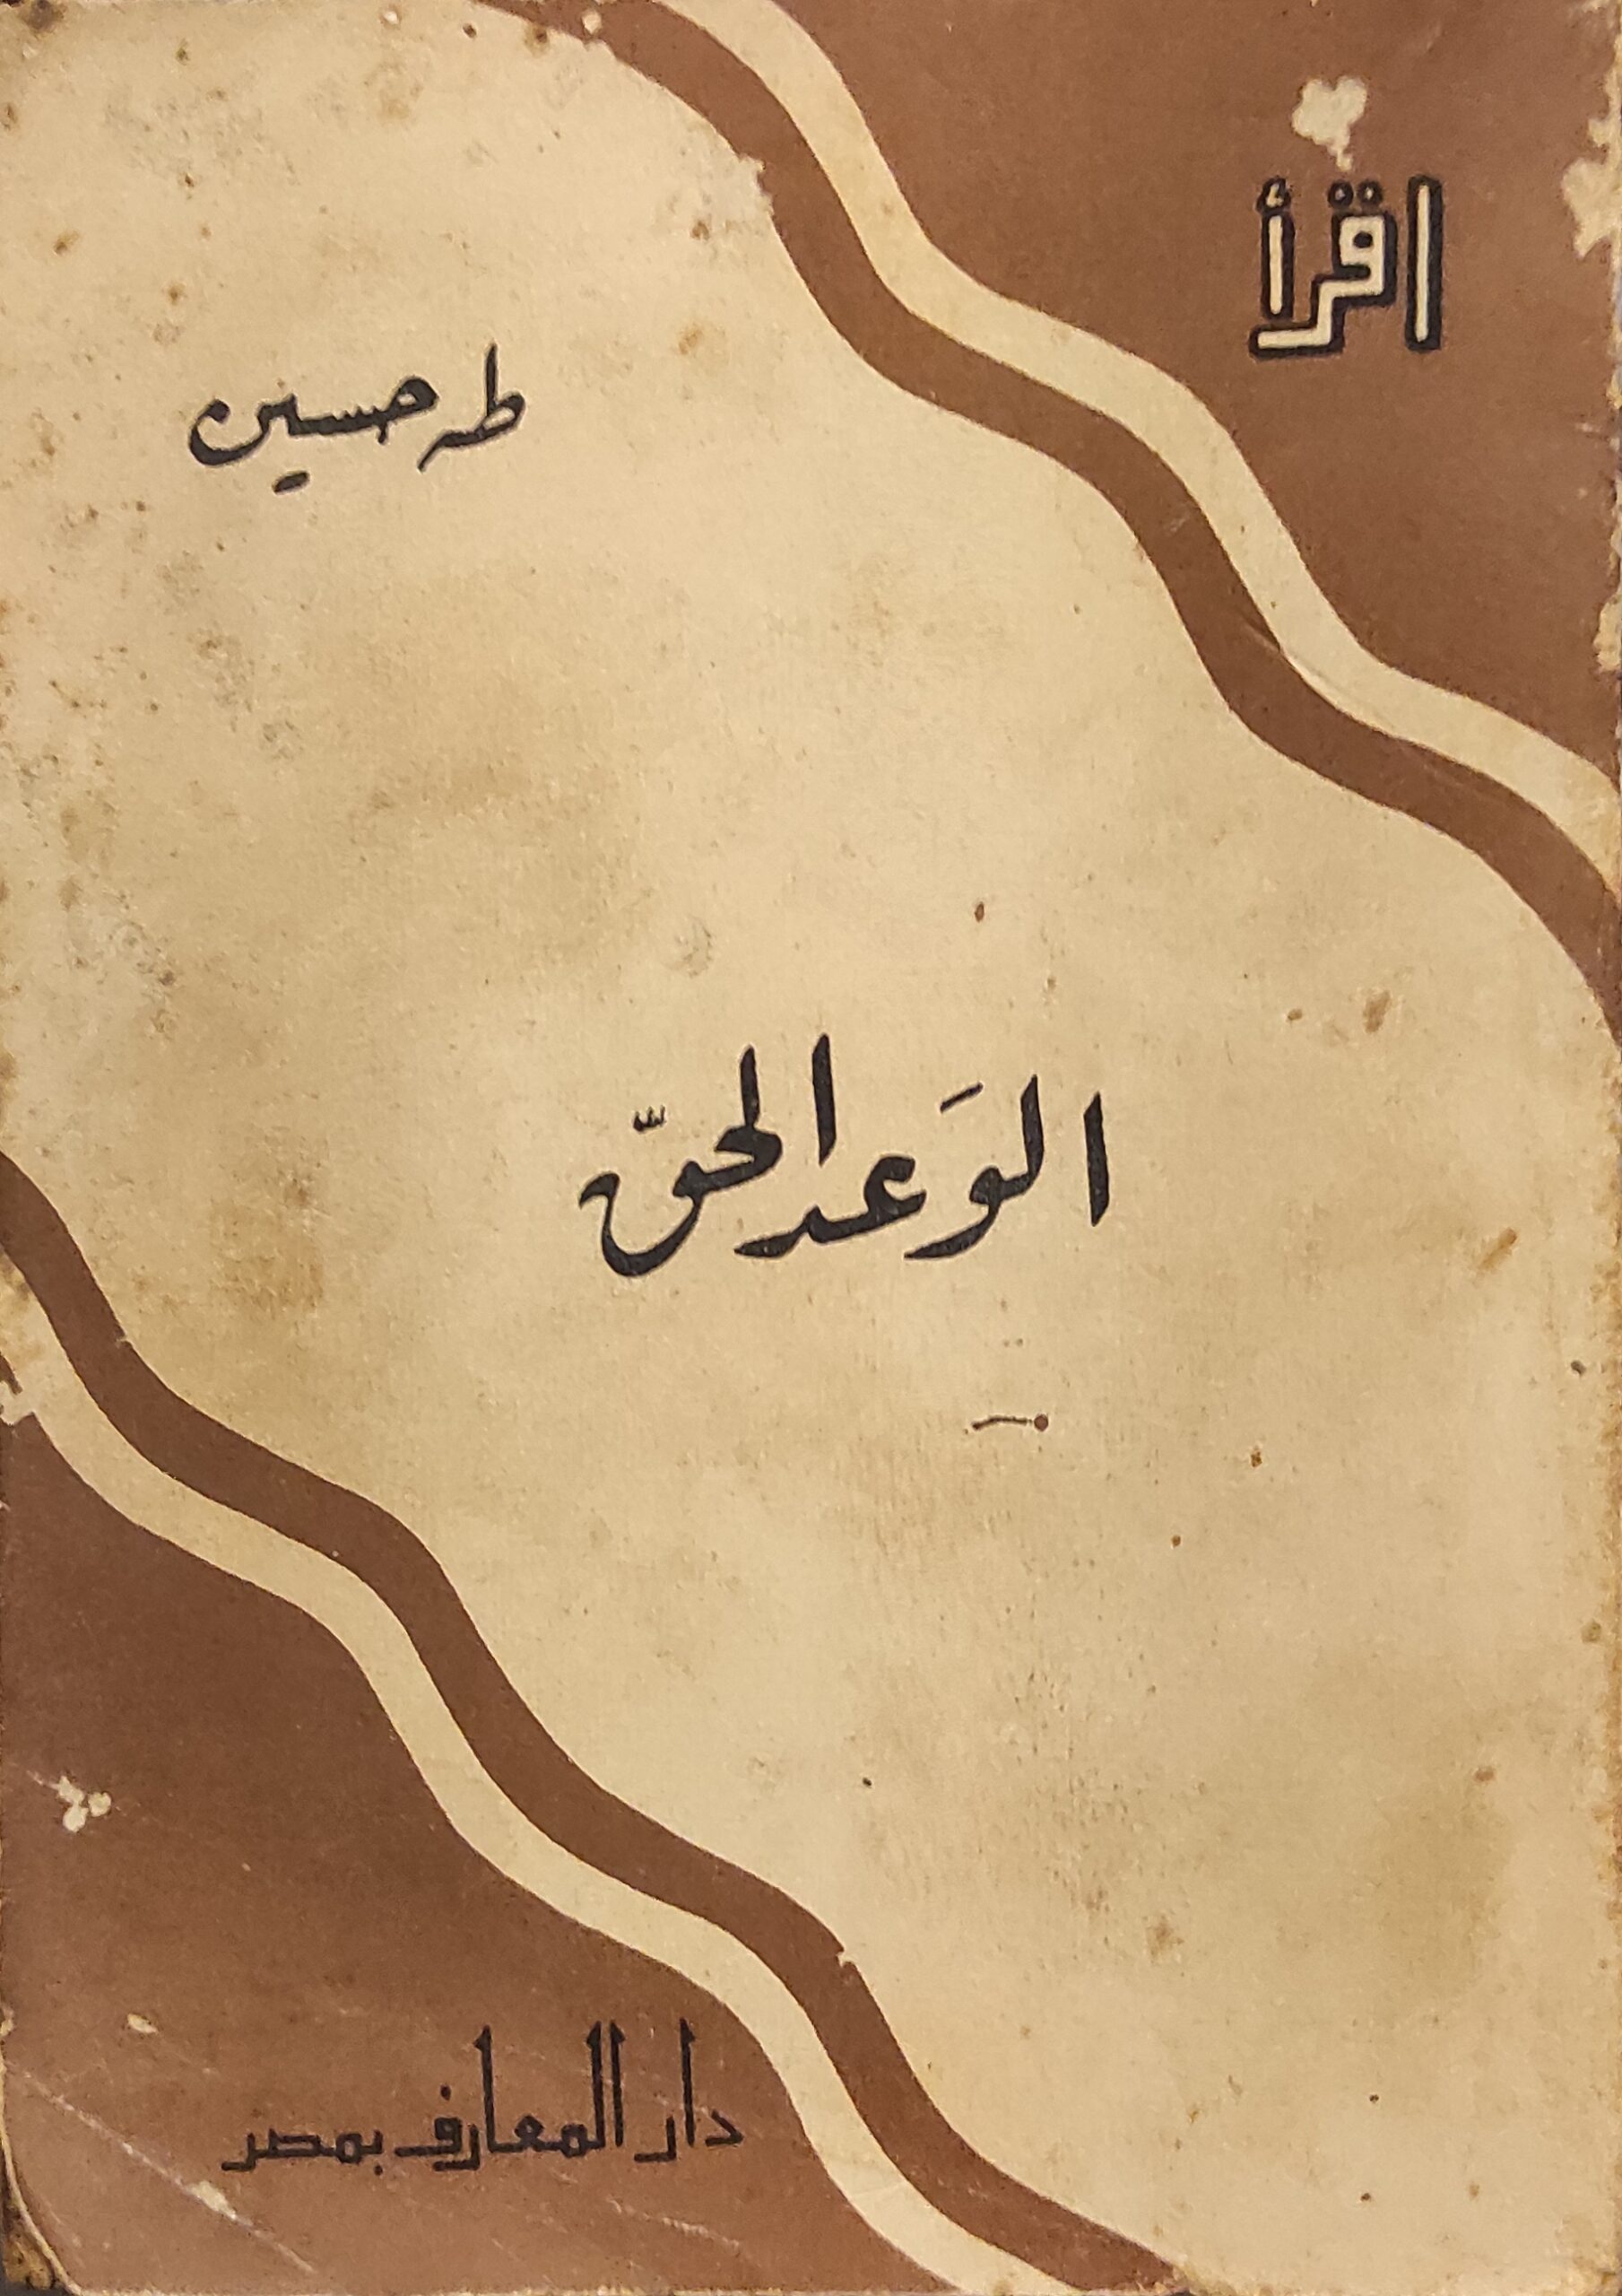 اقرأ
طه حسين
الوَعد الحقّ
دار المعارف بمصر